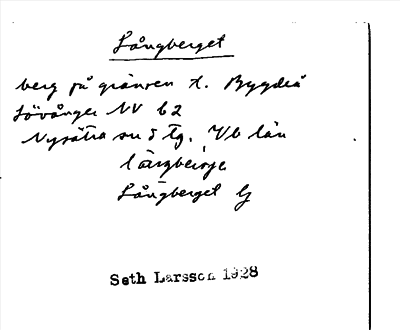 Långberget
berg på gränsen t. Bygdeå
Lövånger NV b2
Nysätra sn o tg. Vb län
Långberget
Seth Larsson 1928